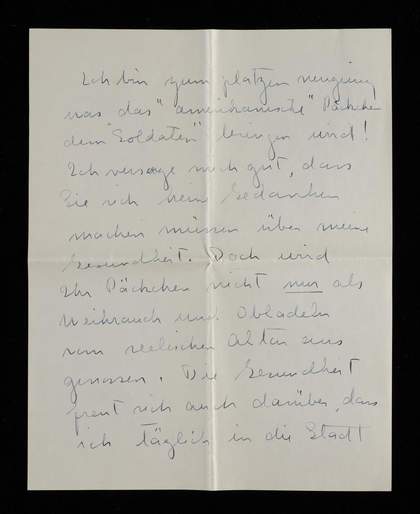 Ich bin zum platzen neugierig
was das "amerikanische" Päckchen
dem "Soldaten" bringen wird!
Ich versorge mich gut, dass
Sie sich keine Gedanken
machen müssen über meine
Gesundheit. Doch wird
Ihr Päckchen nicht nur als
Weihrauch und Obladeln
vom seelischen Altar aus
genossen. Die Gesundheit
freut sich auch darüber, dass
ich täglich in die Stadt